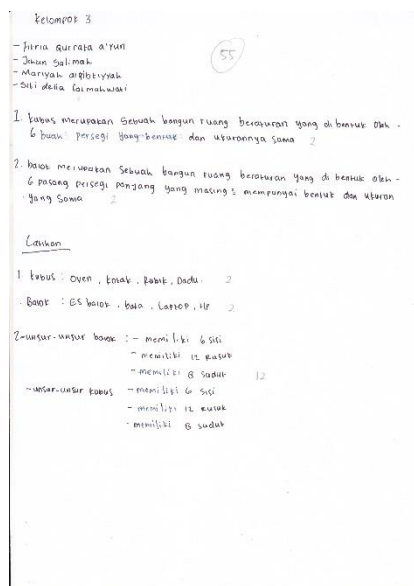 Kelompok 3
- Fitria Qurrata a'yun
- Jehan Salimah
- Mariyah alqibtiyyah
- Siti delia fatmahwati
55
1. kubus merupakan sebuah bangun ruang beraturan yang di bentuk oleh -
6 buah persegi yang bentuk dan ukurannya sama 2
2. balok merupakan sebuah bangun ruang beraturan yang di bentuk oleh -
6 pasang persegi panjang yang masing2 mempunyai bentuk dan ukuran
yang sama 2
Latihan
1 kubus : oven, kotak, Rubik, Dadu. 2
. Balok : ES balok, bata, Laptop, HP 2
2-unsur-unsur balok : - memiliki 6 sisi
- memiliki 12 Rusuk
- memiliki 8 sudut 12
-unsur-unsur kubus - memiliki 6 sisi
- memiliki 12 Rusuk
- memiliki 8 sudut